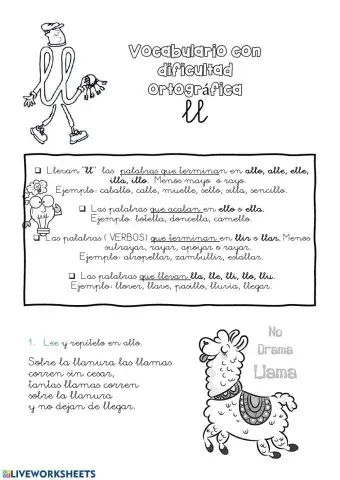 Vocabulario con
dificultad
ortográfica
ll
Llevan "ll" las palabras que terminan en allo, alle, elle,
illa, illo. Menos mayo o rayo.
Ejemplo: caballo, calle, muelle, sello, silla, sencillo.
Las palabras que acaban en ello o ella.
Ejemplo: botella, doncella, camello.
Las palabras ( VERBOS) que terminan en llir o llar. Menos
subrayar, rayar, apoyar o rayar.
Ejemplo: atropellar, zambullir, estallar.
Las palabras que llevan lla, lle, lli, llo, llu.
Ejemplo: llover, llave, pasillo, lluvia, llegar.
1. Lee y repítelo en alto.
Sobre la llanura las llamas
corren sin cesar,
tantas llamas corren
sobre la llanura
y no dejan de llegar.
No
Drama
Llama
LIVEWORKSHEETS